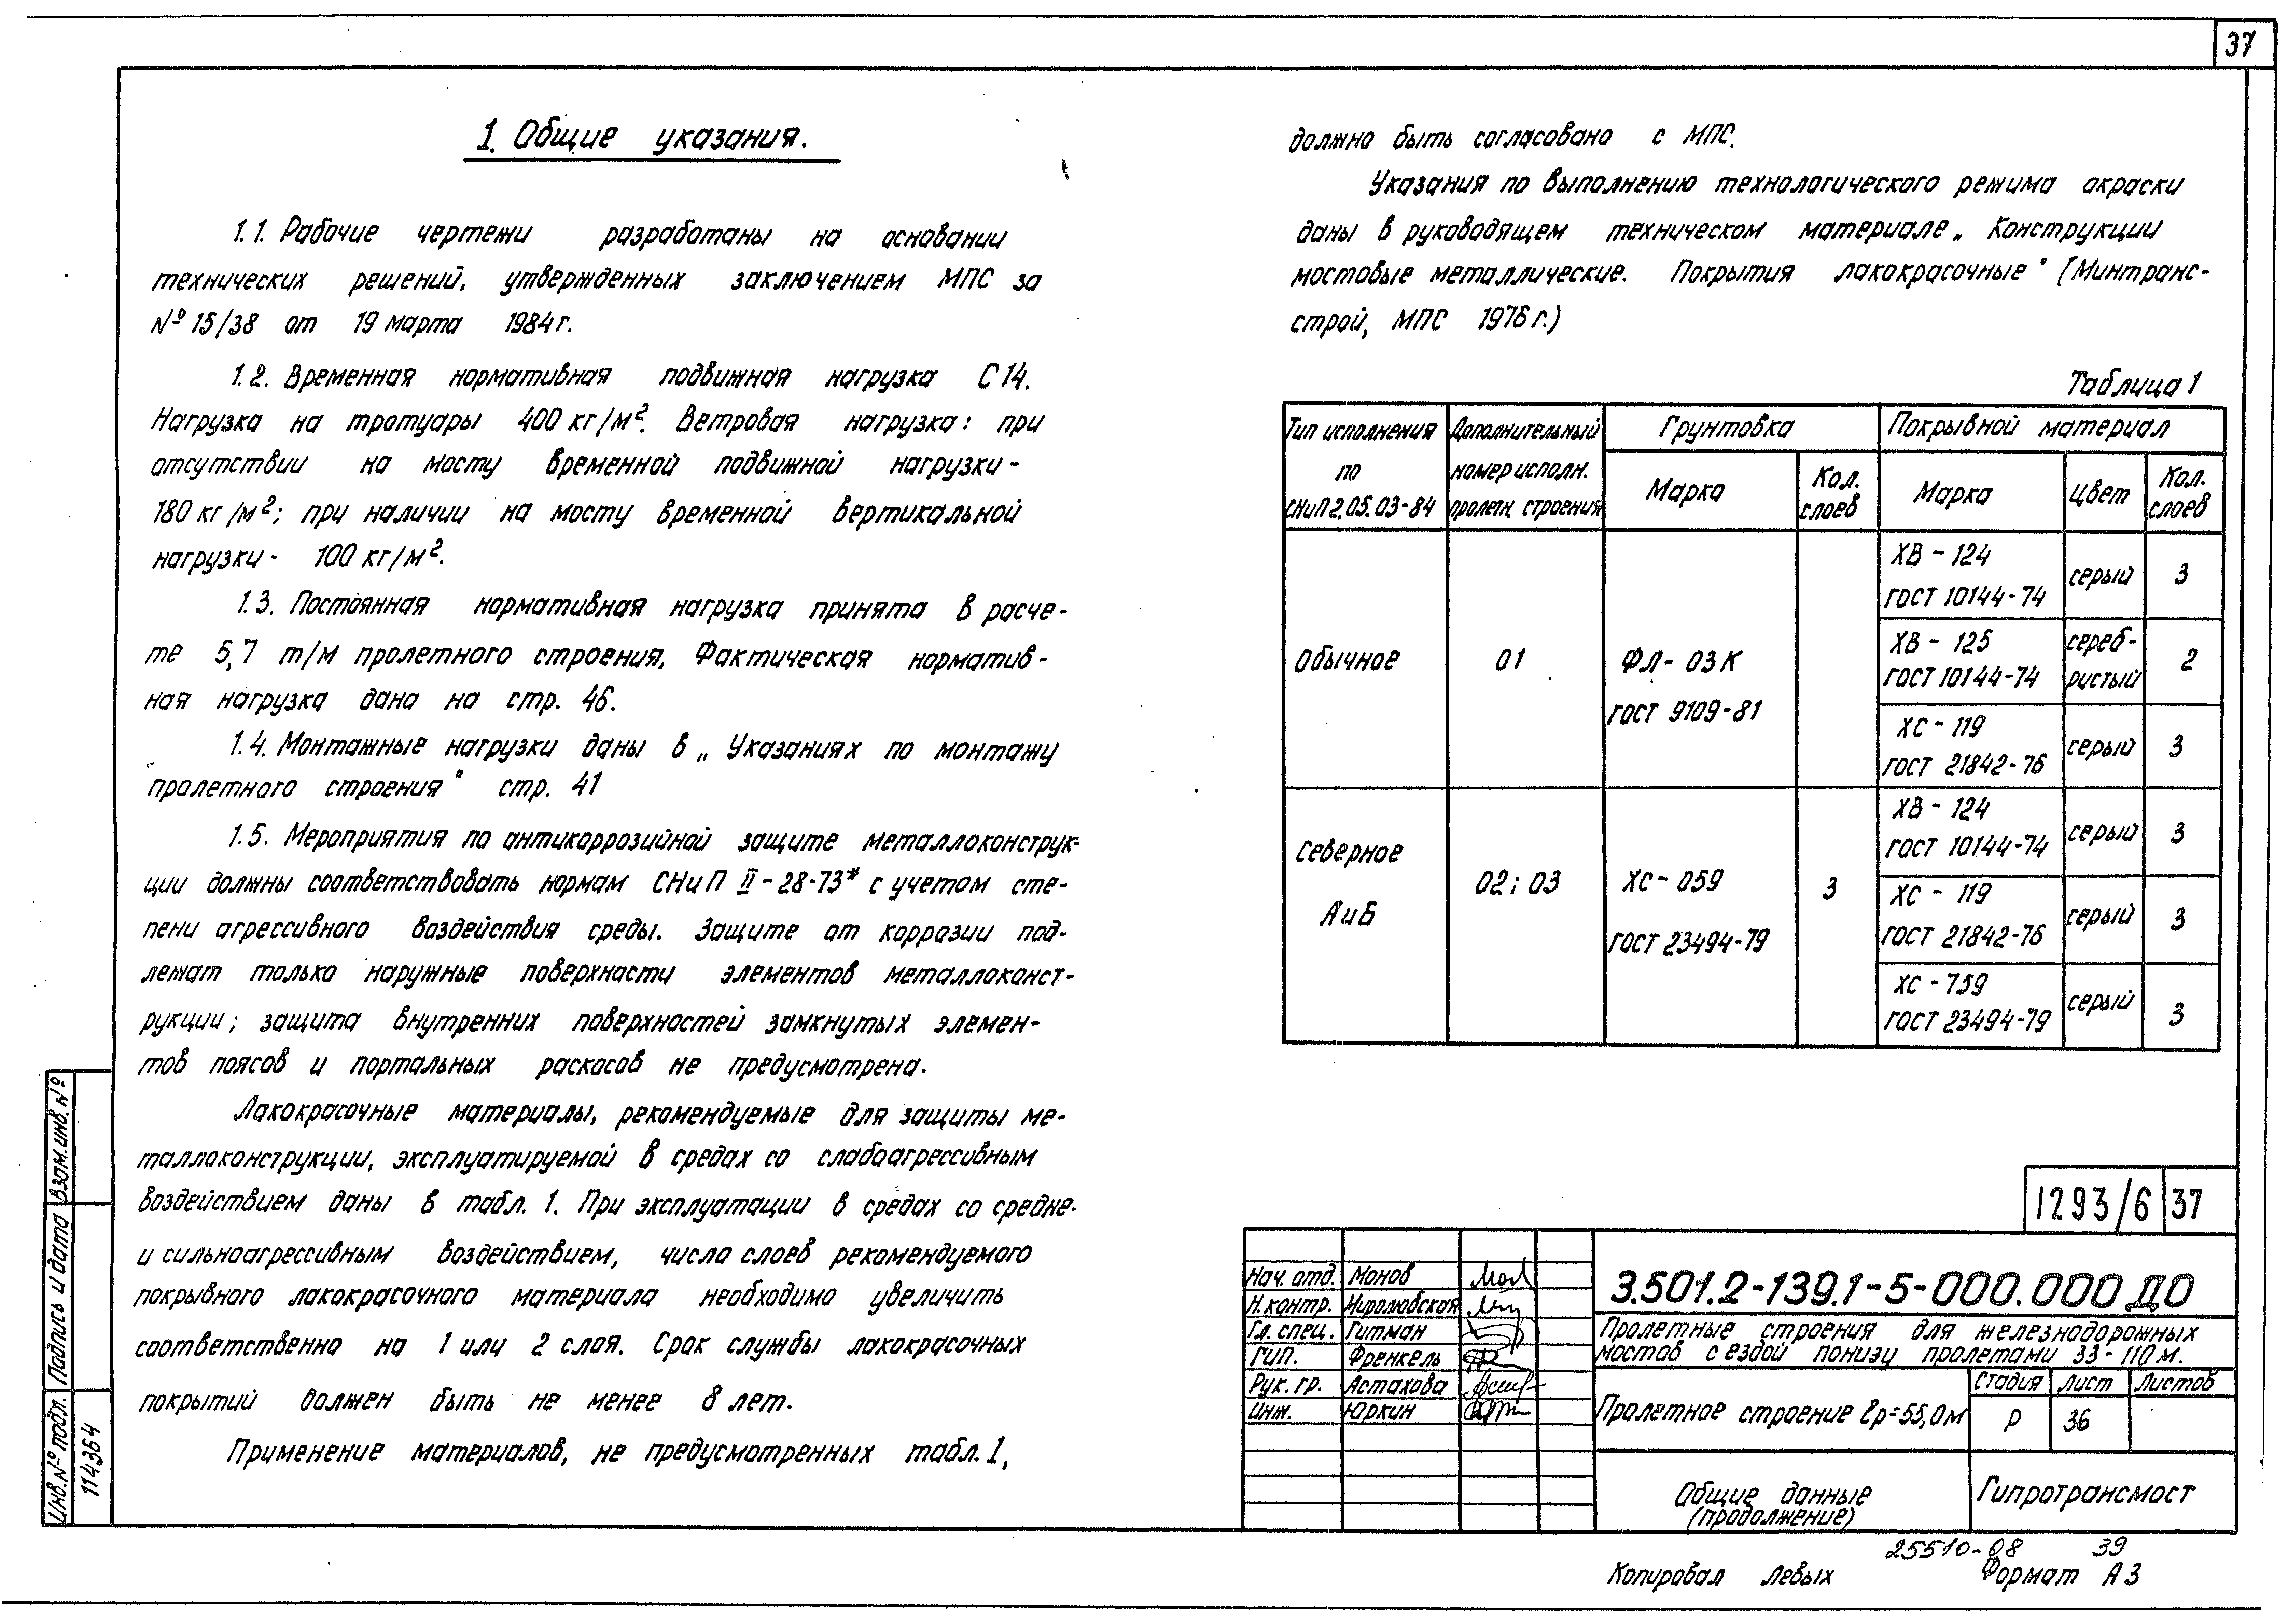 37
1. Общие указания.
1.1. Рабочие чертежи разработаны на основании
технических решений, утвержденных заключением МПС за
№ 15/38 от 19 марта 1984 г.
1.2. Временная нормативная подвижная нагрузка С14.
Нагрузка на тротуары 400 кг/м². Ветровая нагрузка: при
отсутствии на мосту временной подвижной нагрузки -
180 кг/м²; при наличии на мосту временной вертикальной
нагрузки - 100 кг/м².
1.3. Постоянная нормативная нагрузка принята в расче-
те 5,7 т/м пролетного строения, Фактическая норматив-
ная нагрузка дана на стр. 46.
1.4. Монтажные нагрузки даны в „Указаниях по монтажу
пролетного строения" стр. 41
1.5. Мероприятия по антикоррозийной защите металлоконструк-
ции должны соответствовать нормам СНиП II-28-73* с учетом сте-
пени агрессивного воздействия среды. Защите от коррозии под-
лежат только наружные поверхности элементов металлоконст-
рукции; защита внутренних поверхностей замкнутых элемен-
тов поясов и портальных раскосов не предусмотрена.
Лакокрасочные материалы, рекомендуемые для защиты ме-
таллоконструкции, эксплуатируемой в средах со слабоагрессивным
воздействием даны в табл. 1. При эксплуатации в средах со средне-
и сильноагрессивным воздействием, число слоев рекомендуемого
покрывного лакокрасочного материала необходимо увеличить
соответственно на 1 или 2 слоя. Срок службы лакокрасочных
покрытий должен быть не менее 8 лет.
Применение материалов, не предусмотренных табл. 1,
должно быть согласовано с МПС.
Указания по выполнению технологического режима окраски
даны в руководящем техническом материале „Конструкции
мостовые металлические. Покрытия лакокрасочные" (Минтранс-
строй, МПС 1976 г.)
Таблица 1
Тип исполнения по СНиП 2.05.03-84
Дополнительный номер исполн. пролетн. строения
Грунтовка
Покрывной материал
Марка
Кол. слоев
Марка
Цвет
Кол. слоев
Обычное
01
ФЛ-03К
ГОСТ 9109-81
ХВ-124
ГОСТ 10144-74
серый
3
ХВ-125
ГОСТ 10144-74
сереб-
ристый
2
ХС-119
ГОСТ 21842-76
серый
3
северное
А и Б
02; 03
ХС-059
ГОСТ 23494-79
3
ХВ-124
ГОСТ 10144-74
серый
3
ХС-119
ГОСТ 21842-76
серый
3
ХС-759
ГОСТ 23494-79
серый
3
1293/6 37
Нач. отд. Монов
Н. контр. Миролюбская
Гл. спец. Гитман
ГИП. Френкель
Рук. гр. Астахова
Инж. Юркин
3.501.2-139.1-5-000.000 ДО
Пролетные строения для железнодорожных
мостов с ездой понизу пролетами 33-110 м.
Пролетное строение lр=55,0м
Стадия Лист Листов
Р 36
Общие данные
(продолжение)
Гипротрансмост
25510-08 39
Копировал Левых Формат А3
Взам. инв. №
Подпись и дата
Инв. № подл.
114364